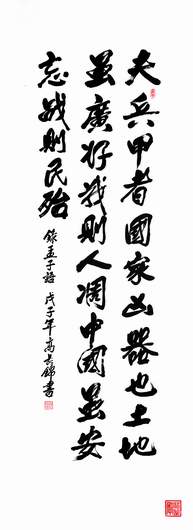 夫兵甲者國家凶器也土地
虽廣好战則人凋中國虽安
忘战則民殆
錄孟子語 戊子年高长錦書